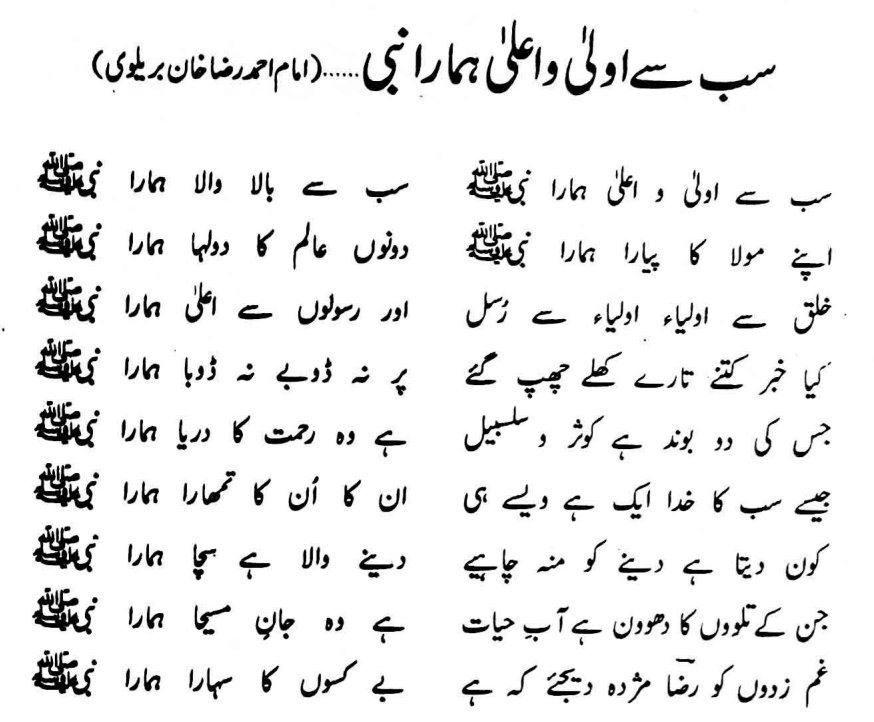 سب سے اولیٰ و اعلیٰ ہمارا نبی......(امام احمد رضا خان بریلوی)
سب سے اولیٰ و اعلیٰ ہمارا نبی ﷺ سب سے بالا والا ہمارا نبی ﷺ
اپنے مولا کا پیارا ہمارا نبی ﷺ دونوں عالم کا دولہا ہمارا نبی ﷺ
خلق سے اولیاء اولیاء سے رُسل اور رسولوں سے اعلیٰ ہمارا نبی ﷺ
کیا خبر کتنے تارے کھلے چھپ گئے پر نہ ڈوبے نہ ڈوبا ہمارا نبی ﷺ
جس کی دو بوند ہے کوثر و سلسبیل ہے وہ رحمت کا دریا ہمارا نبی ﷺ
جیسے سب کا خدا ایک ہے ویسے ہی ان کا اُن کا تمھارا ہمارا نبی ﷺ
کون دیتا ہے دینے کو منہ چاہیے دینے والا ہے سچا ہمارا نبی ﷺ
جن کے تلووں کا دھوون ہے آبِ حیات ہے وہ جانِ مسیحا ہمارا نبی ﷺ
غم زدوں کو رضؔا مژدہ دیجئے کہ ہے بے کسوں کا سہارا ہمارا نبی ﷺ